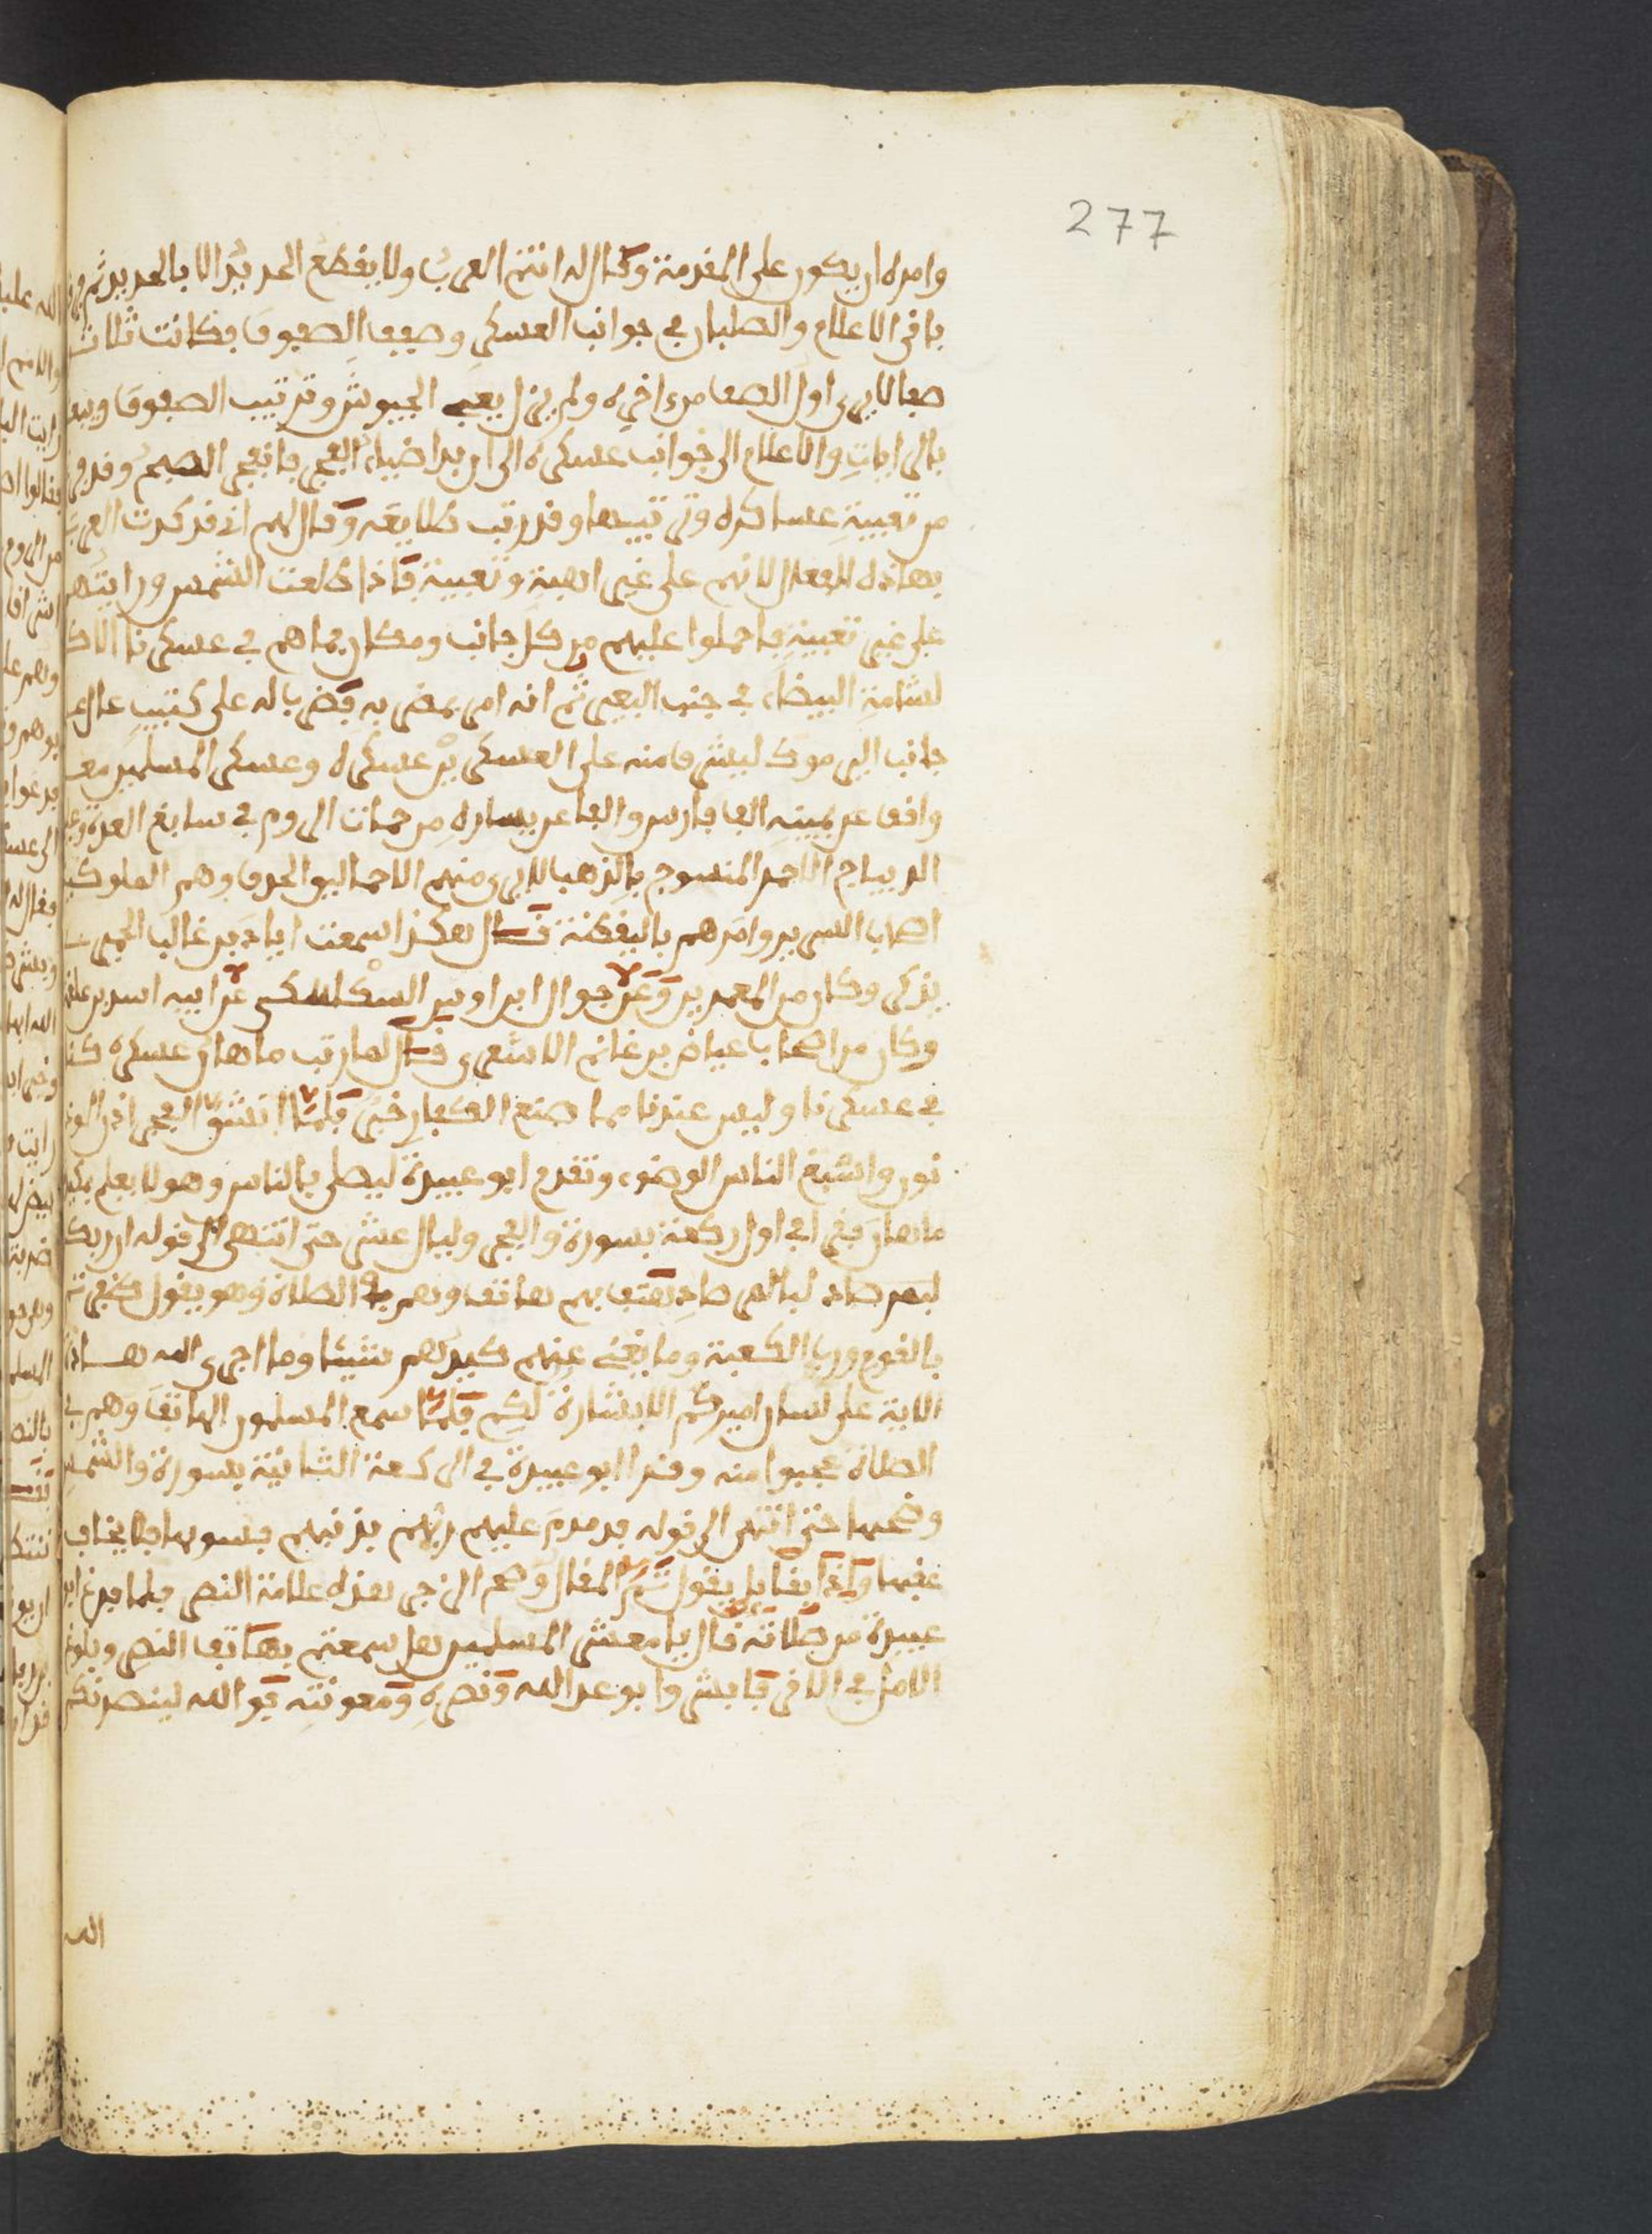 277
وامره ان يكون على المقدمة وقال له انتم العرب ولا يقطع الحديد الا بالحديد ثم
باقي الاعلام والصلبان في جوانب العسكر وصفف الصفوف فكانت ثلاث
صفا لا يرى اول الصف من اخره ولم يزل يعبي الجيوش وترتيب الصفوف
بالرايات والاعلام الى جوانب عسكره الى ان بدا ضياء الفجر فانفجر الصبح وقد
من تعبية عساكره وترتيبها وقد رتب طلايعه وقال لهم اني قد كدت العرب
بهاذه الفعال لانهم على غير اهبة وتعبية فاذا طلعت الشمس ورايتهم
على غير تعبية فاحملوا عليهم من كل جانب ومكان فما هم في عسكرنا الا ك
لشامة البيضاء في جنب البعير ثم انه امر بمضربه فضرب له على كثيب عال
جانب اليرموك ليشرف منه على العسكرين عسكره وعسكر المسلمين
واقف عن يمينه الف فارس والف عن يساره من حمات الروم في سابغ العدة
الديباج الاحمر المنسوج بالذهب لا يرى منهم الا حماليق الحدق وهم الملوكية
اصحاب السرير وامرهم باليقظة قال هكذا سمعت اياد بن غالب الحميري
يذكر وكان من المعمرين وعن جوال ابن اوس السكاسكي عن ابيه اسد بن علقمة
وكان من اصحاب عياض بن غانم الاشعري قال لما رتب ماهان عسكره كنا
في عسكرنا وليس عندنا مما صنع الكفار خبر فلما انشق الفجر اذن
نون واسبغ الناس الوضوء وتقدم ابو عبيدة ليصلي بالناس وهو لا يعلم بكيد
ماهان فقرا في اول ركعة بسورة والفجر وليال عشر حتى انتهى الى قوله ان ربك
لبالمرصاد فهتف بهم هاتف وهم في الصلاة وهو يقول ظفرتم
بالقوم ورب الكعبة وما يغني عنهم كيدهم شيئا وما اجرى الله هذه
الاية على لسان اميركم الا بشارة لكم فلما سمع المسلمون الهاتف وهم في
الصلاة عجبوا منه وقرا ابو عبيدة في الركعة الثانية بسورة والشمس
وضحيها حتى انتهى الى قوله فدمدم عليهم ربهم بذنبهم فسويها فلا يخاف
عقبها واذا بقايل يقول تم المقال وصح الزجر هذه علامة النصر فلما فرغ ابو
عبيدة من صلاته قال يا معشر المسلمين هل سمعتم بهاتف النصر وبلوغ
الامل في الافق فابشروا بوعد الله ونصره ومعونته فو الله لينصرنكم
الله